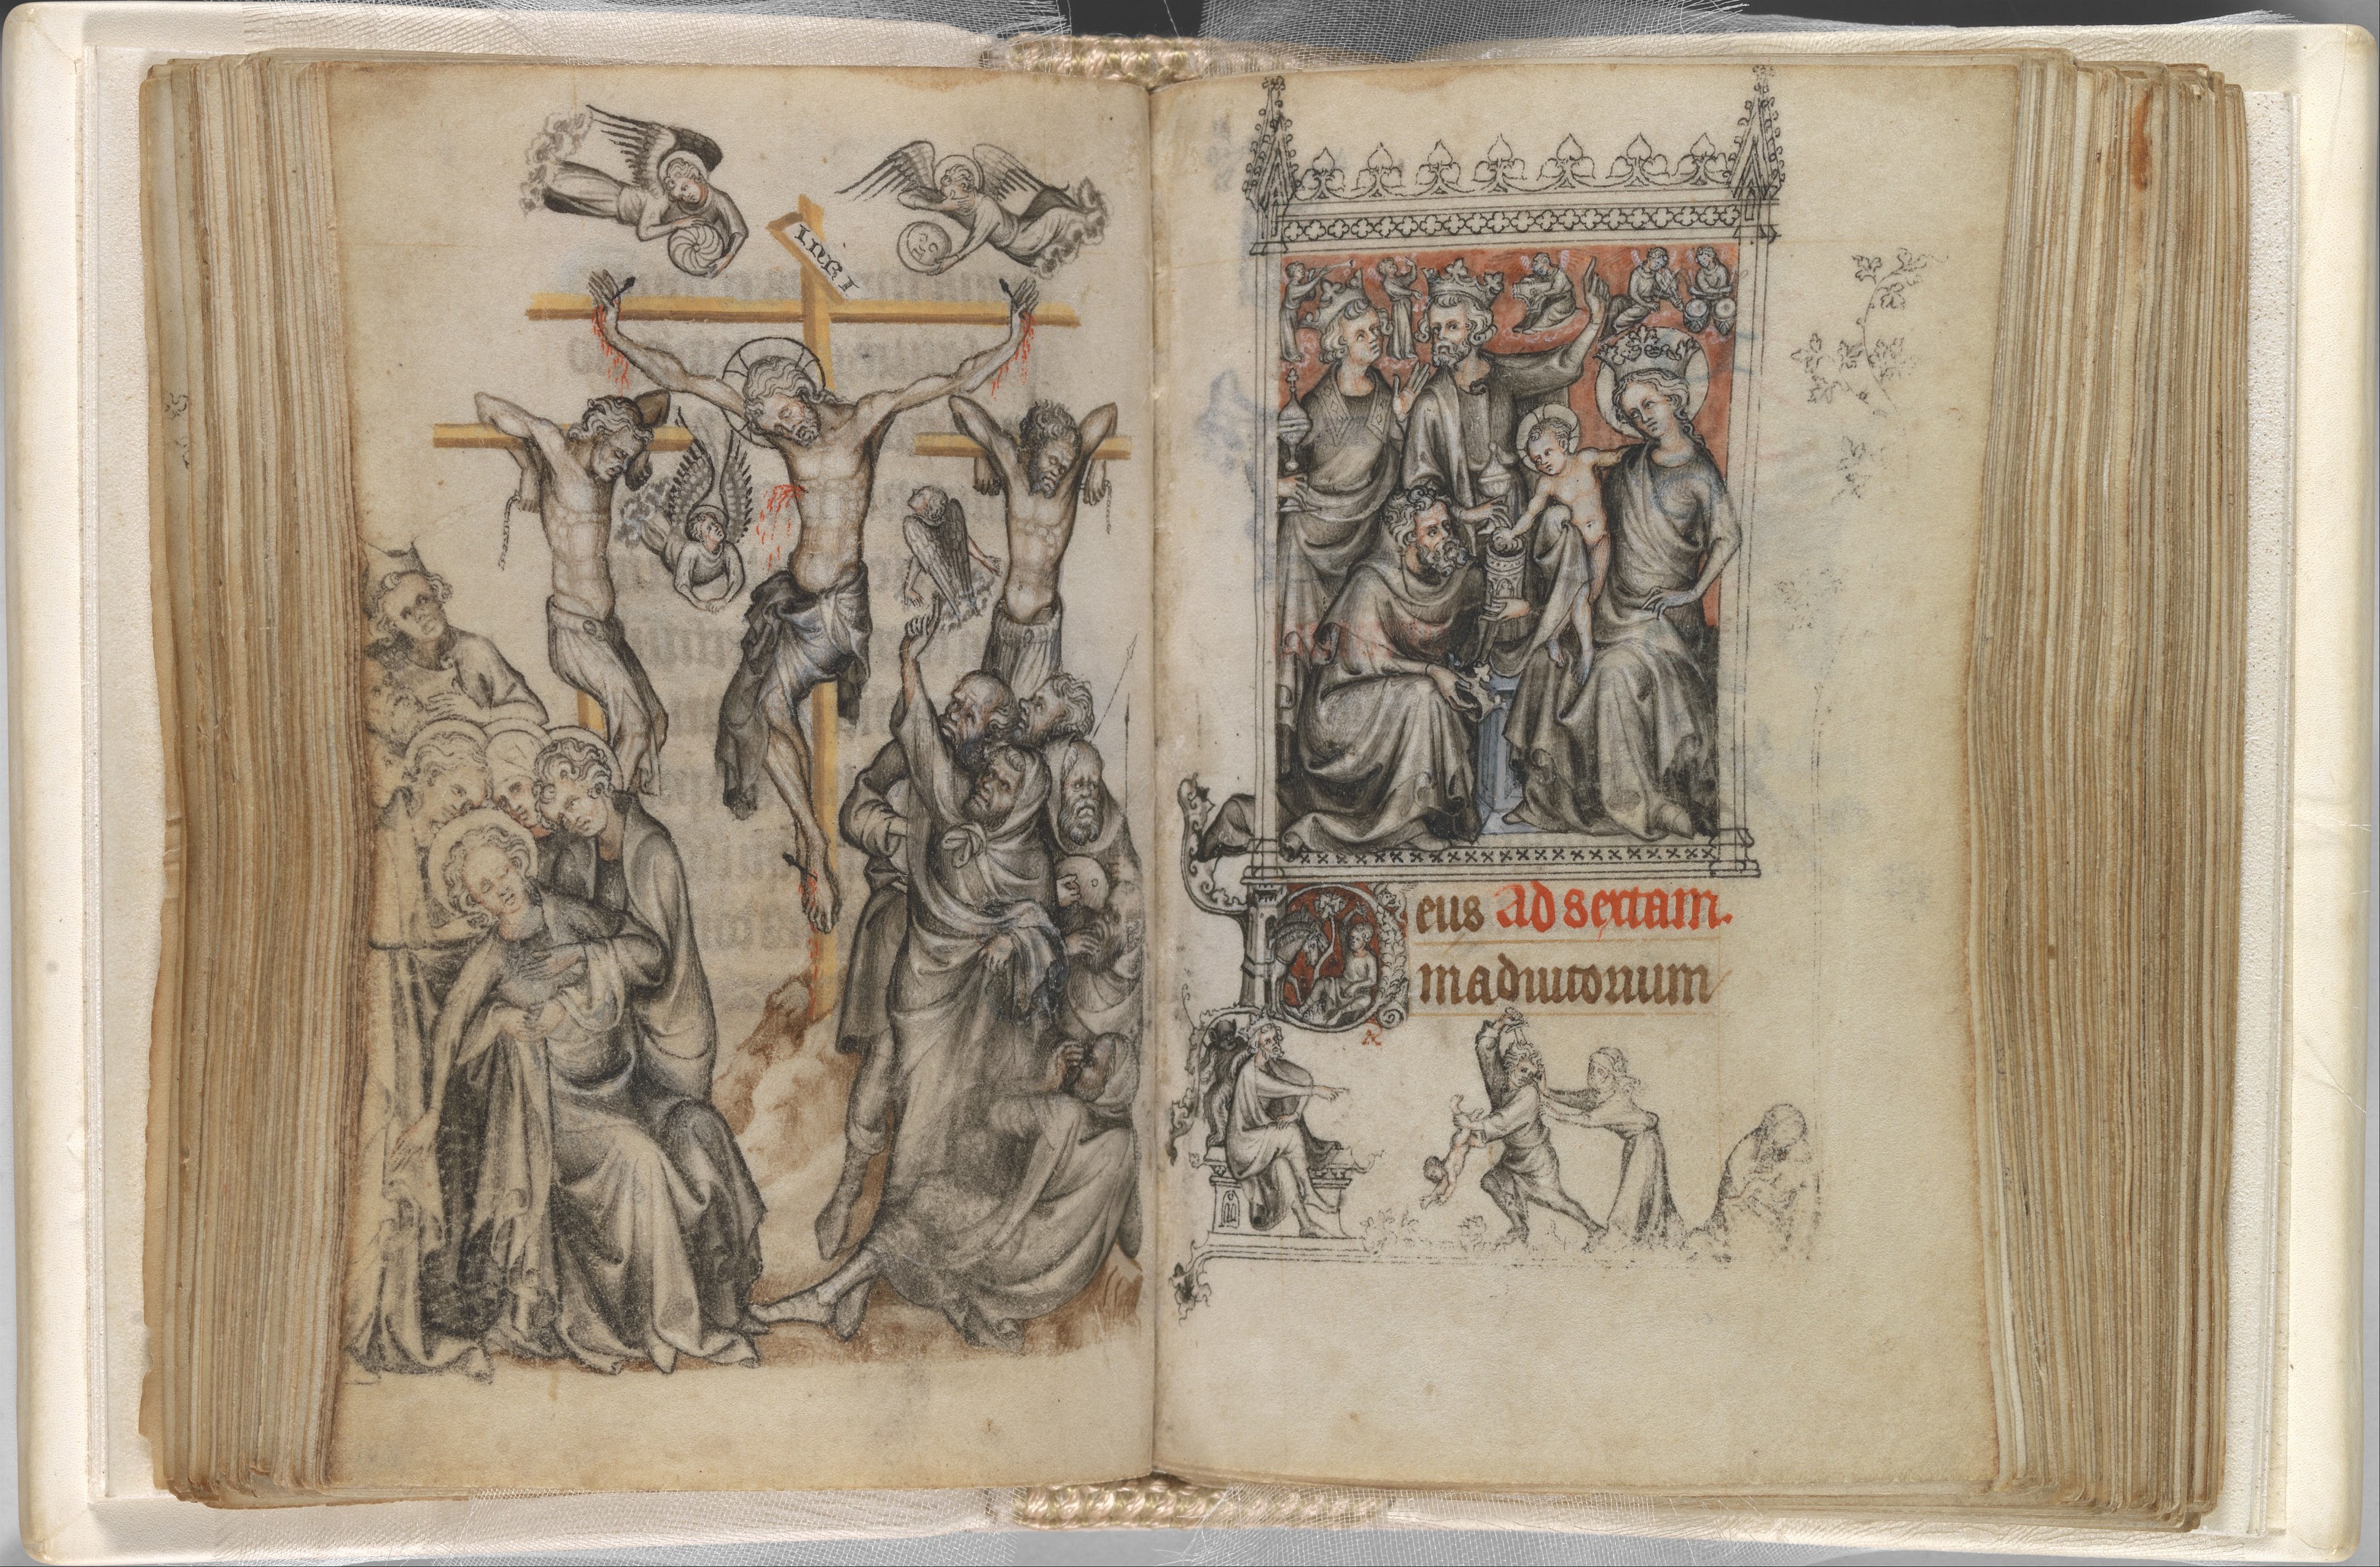 INRI
eus Ad sextam.
m adiutorium